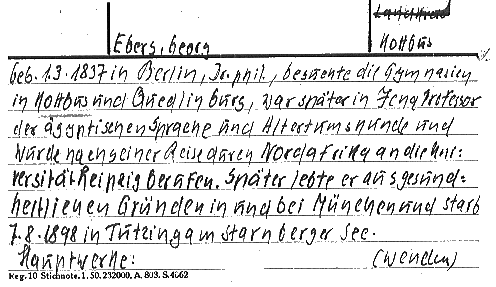 Landkreis
Ebers, Georg
Kottbus
geb. 1.3.1837 in Berlin, Dr. phil., besuchte die Gymnasien
in Kottbus und Quedlinburg, war später in Jena Professor
der ägyptischen Sprache und Altertumskunde und
wurde nach einer Reise durch Nordafrika an die Uni=
versität Leipzig berufen. Später lebte er aus gesund=
heitlichen Gründen in und bei München und starb
7.8.1898 in Tutzing am Starnberger See.
Hauptwerke: (wenden)
Reg. 10 Stichnote. 1. 50. 232000. A. 803. S. 4662